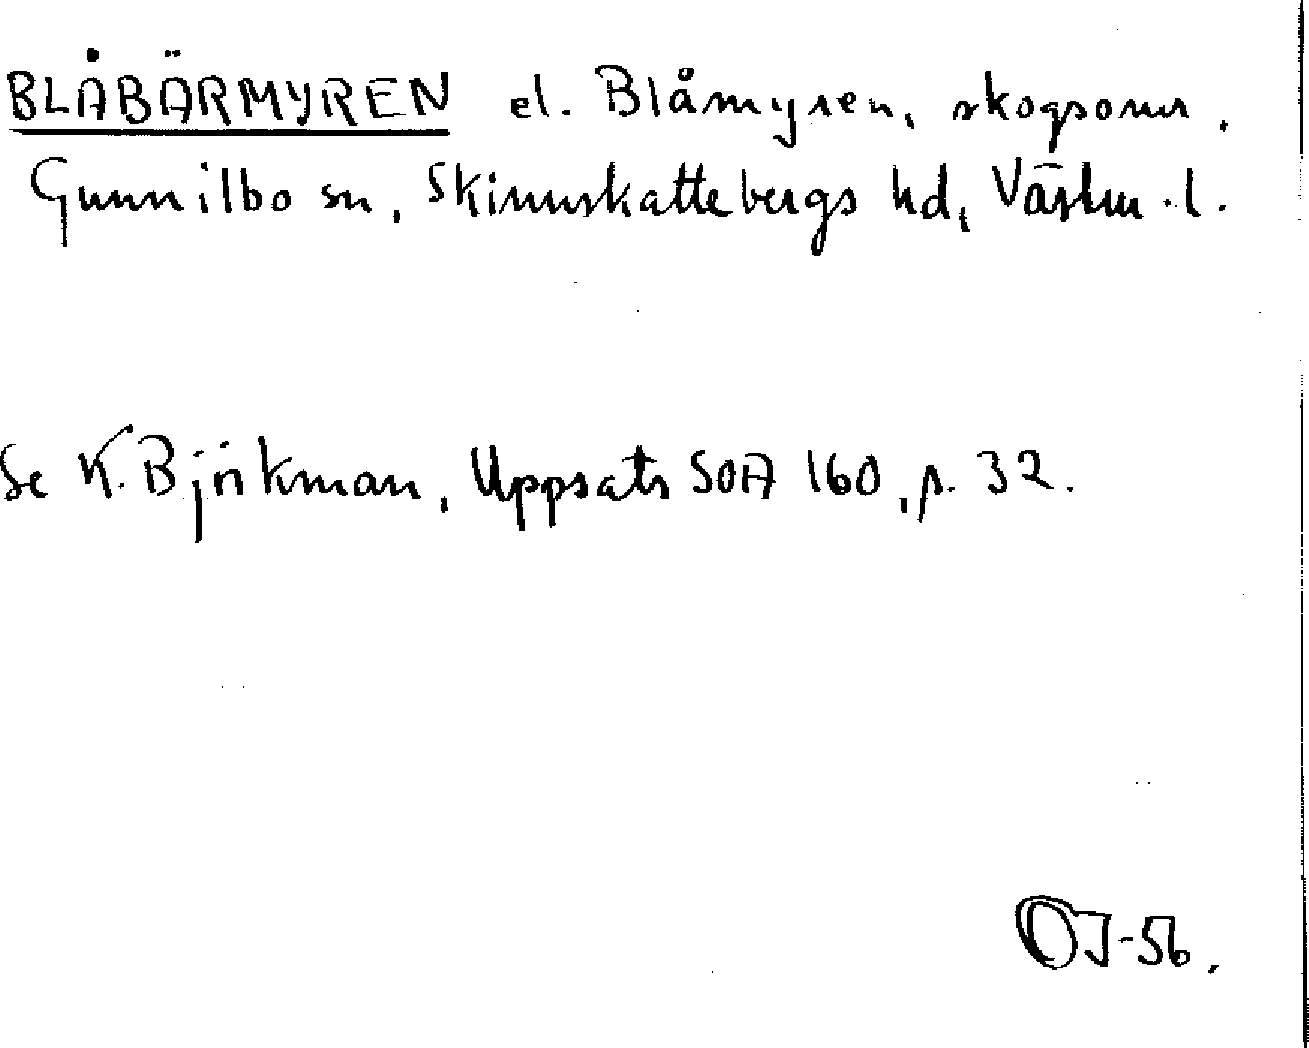 BLÅBÄRMYREN el. Blåmyren, skogsomr.
Gunnilbo sn, Skinnskattebergs hd, Västm.l.
Se K. Björkman, Uppsats SOA 160, p. 32.
OJ-56.